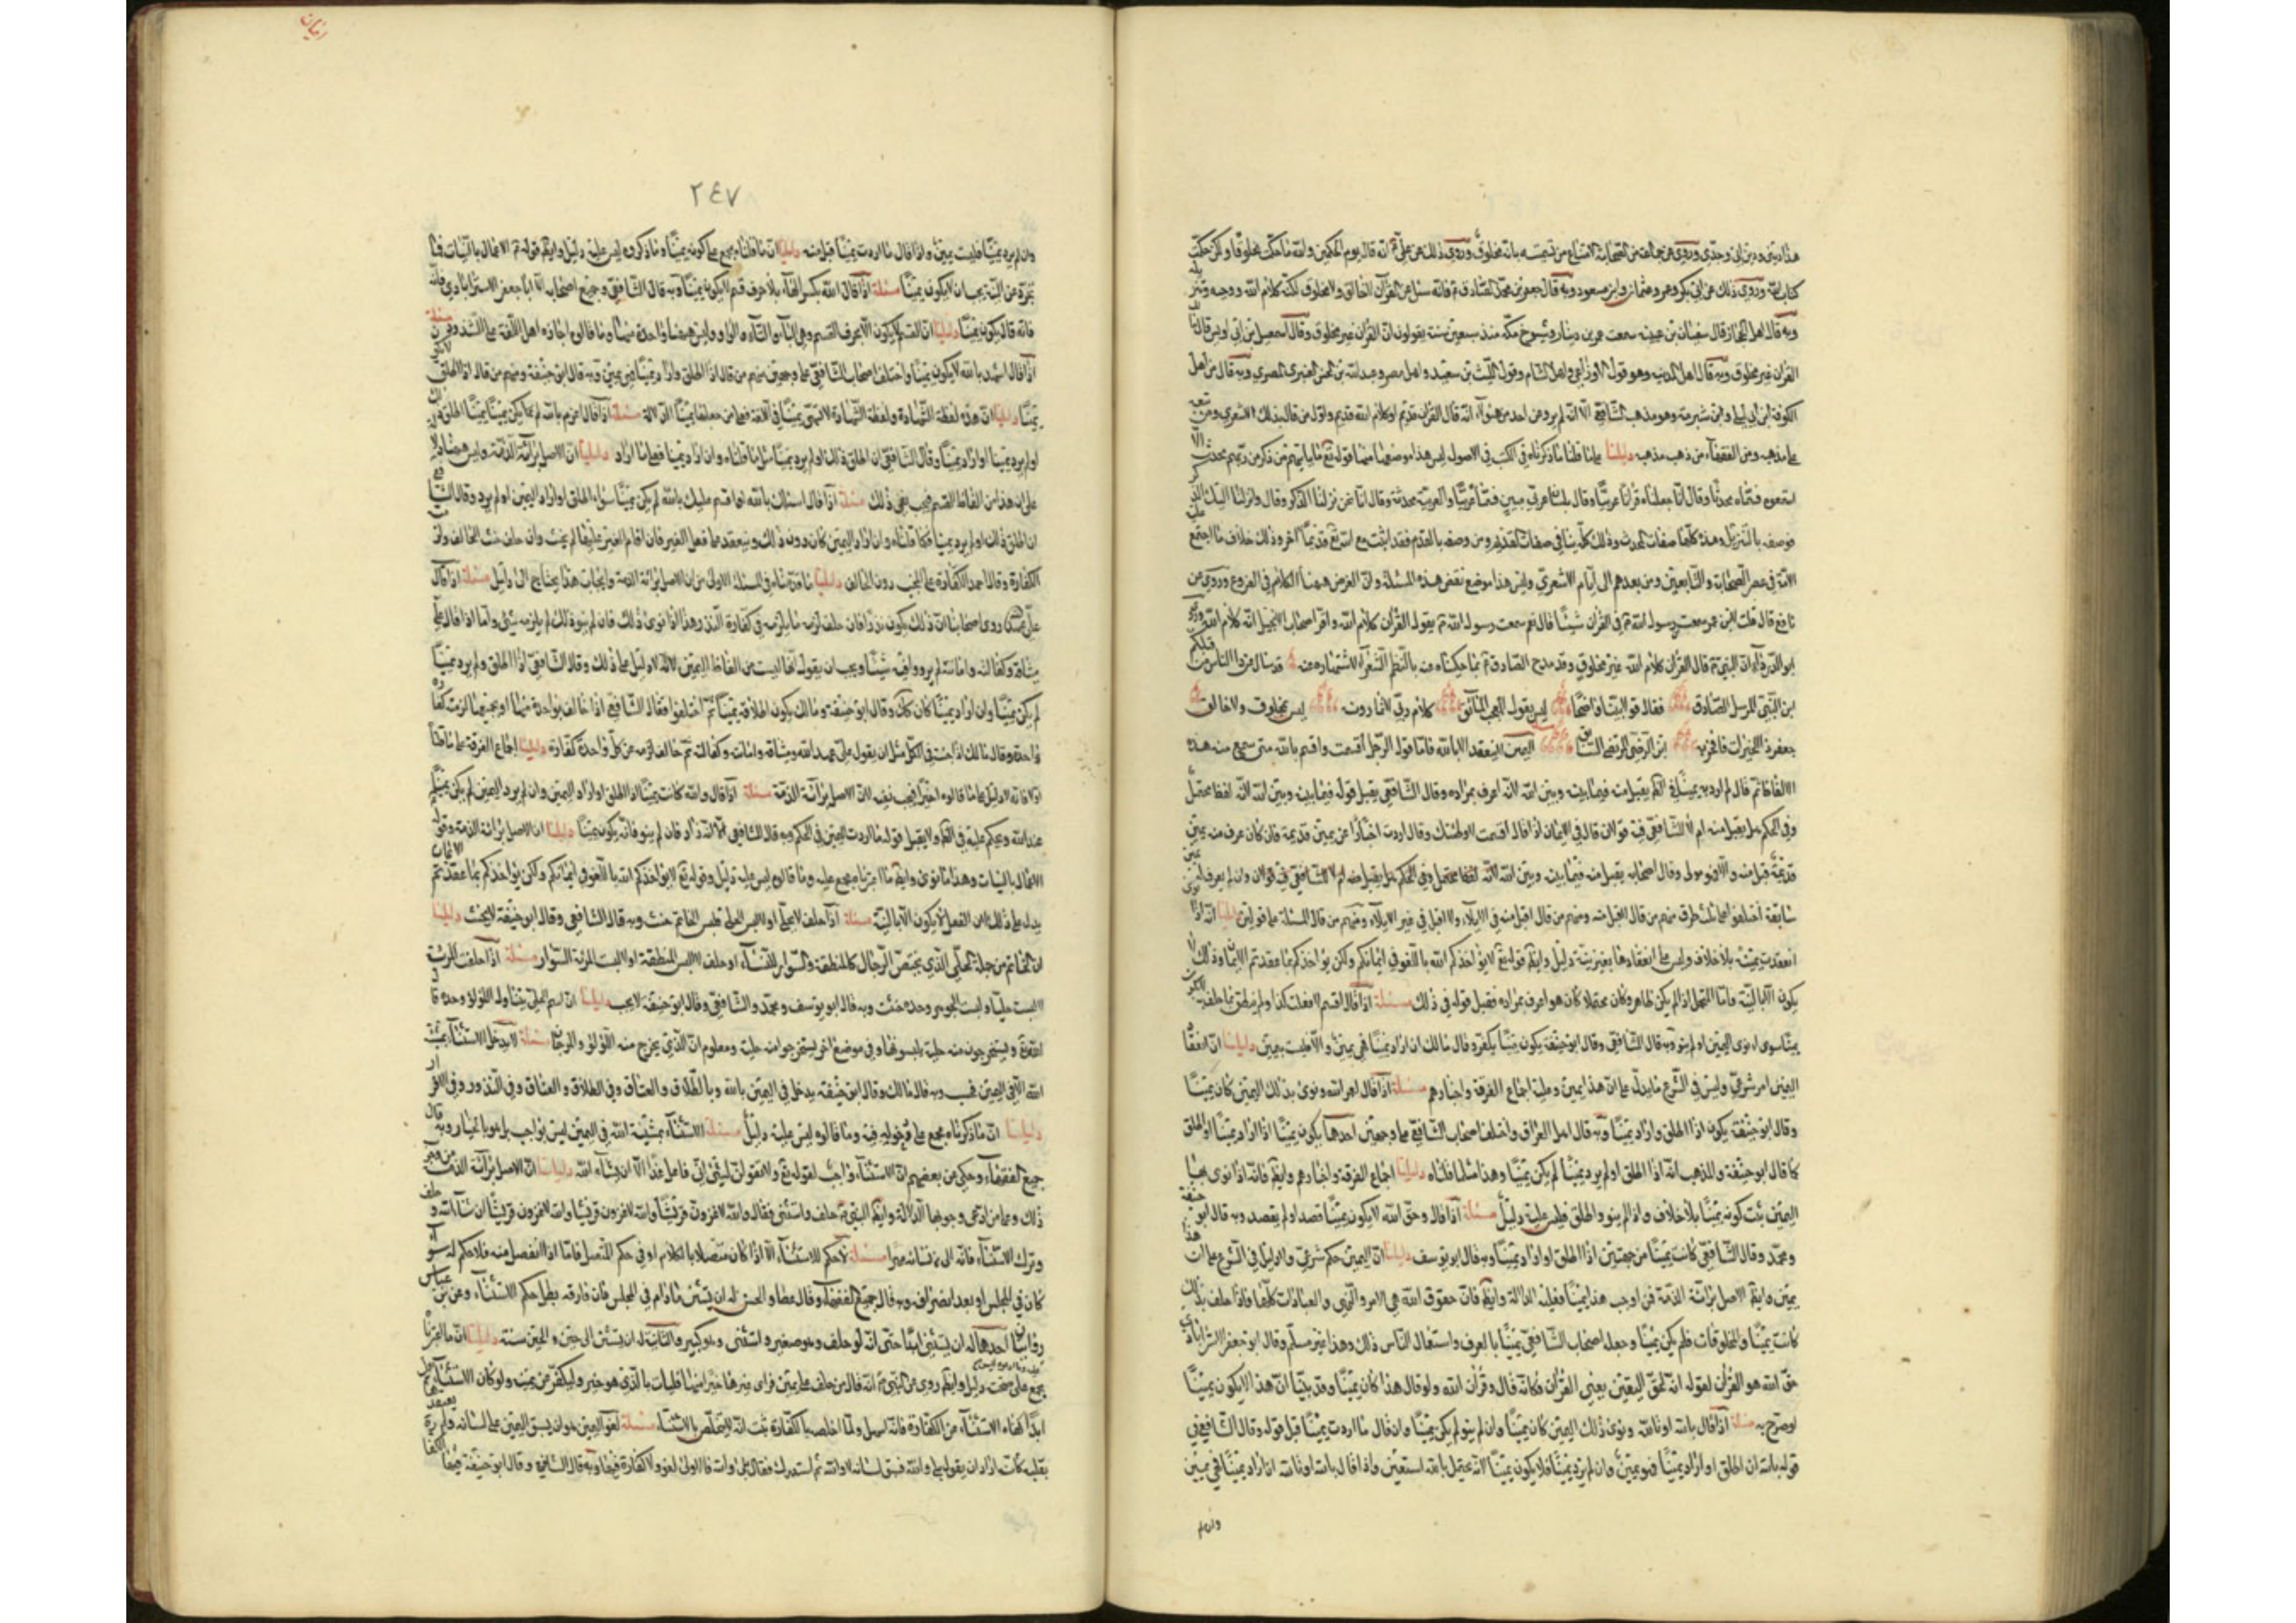 وروي ذلك عن علي ع انه قال يوم الحكمين والله ما حكمت مخلوقا ولكن حكمت
كتاب الله وروي ذلك عن ابي بكر وعمر وعثمان وابن مسعود وبه قال جعفر بن محمد الصادق ع فانه سئل عن القرآن اخالق ولا مخلوق لكنه كلام الله ووحيه وتنزيله
وبه قال اهل الحجاز قال سفيان بن عيينه سمعت عمرو بن دينار وشيوخ مكة منذ سبعين سنة يقولون ان القرآن غير مخلوق وقال اسمعيل بن ابي اويس قال
القرآن غير مخلوق وبه قال اهل المدينه وهو قول الاوزاعي واهل الشام وقول الليث بن سعيد واهل مصر وعبد الله بن الحسن العنبري البصري وبه قال من اهل
الكوفة ابن ابي ليلى وابن شبرمة وهو مذهب الشافعي الا انه لم يرو عن احد من هؤلاء انه قال القرآن قديم او كلام الله قديم واول من قال بذلك الاشعري ومن تبعه
على مذهبه ومن الفقهاء من ذهب مذهبه دليلنا على ما قلنا ما ذكرناه في الكتب في الاصول ليس هذا موضعها منها قوله تع ما ياتيهم من ذكر من ربهم محدث الا
استمعوه فسماه محدثا وقال انا جعلناه قرآنا عربيا وقال بلسان عربي مبين فسماه عربيا والعربية محدثة وقال انا نحن نزلنا الذكر وقال وانزلنا اليك الذكر
فوصفه بالتنزيل وهذه كلها صفات المحدث وذلك ينافي صفات القديم ومن وصفه بالقدم فقد اثبت مع الله تع قديما آخر وذلك خلاف ما اجتمع عليه
الامة في عصر الصحابة والتابعين ومن بعدهم الى ايام الاشعري وليس هذا موضع نقض هذه المسئلة وان الغرض ههنا الكلام في الفروع وروي عن
نافع قال قلت لابن عمر سمعت رسول الله ص في القرآن شيئا قال نعم سمعت رسول الله ص يقول القرآن كلام الله
ابو الدرداء ان النبي ص قال القرآن كلام الله غير مخلوق وقد مدح الصادق ع بما حكيناه عنه بالنظم الشعراء لاشتهاره عنه قد سال عن ذا الناس من قبلكم
ابن النبي المرسل الصادق فقال قولا بينا واضحا ليس يقول المعجب المائق كلام ربي لا تمارونه ليس بمخلوق ولا خالق
جعفر ذا الخيرات فافخر به ابن الوصي المرتضى السابق اليمين لا ينعقد الا بالله فاما قول الرجل اقسمت واقسم بالله متى سمع منه هذه
الالفاظ ثم قال لم ارد به يمينا في الحكم يقبل منه فيما بينه وبين الله لانه اعرف بمراده وقال الشافعي يقبل قوله فيما بينه وبين الله لانه لفظ محتمل
وفي الحكم هل يقبل منه ام لا للشافعي فيه قولان قال في الايمان اذا قال اقسمت لا وطئتك وقال اردت اخبارا عن يمين قديمة فان كان عرف منه يمين
قديمة قبل منه والا فهو مولى وقال اصحابه يقبل منه فيما بينه وبين الله لانه لفظ محتمل وفي الحكم هل يقبل منه ام لا للشافعي فيه قولان وان لم يعرف له يمين
سابقة اختلفوا على ثلث طرق منهم من قال اقبل منه ومنهم من قال اقبل منه في الايلاء ولا اقبل في غير الايلاء ومنهم من قال المسئلة على قولين دليلنا انه اذا نوى
انعقدت يمينه بلا خلاف وليس على انعقادها بغير نية دليل وايضا قوله تع لا يؤاخذكم الله باللغو في ايمانكم ولكن يؤاخذكم بما عقدتم الايمان وذلك لا
يكون الا بالنية فاما المحتمل اذا لم يكن ظاهر وكان محتملا كان هو اعرف بمراده فقبل قوله في ذلك مسئلة اذا قال اقسم لا فعلت كذا ولم ينطق بما حلف به لم يكن
يمينا سوى نوى اليمين او لم ينو وبه قال الشافعي وقال ابو حنيفة يكون يمينا يكفر وقال مالك ان اراد يمينا فهي يمين والا فليست بيمين دليلنا ان انعقاد
اليمين امر شرعي وليس في الشرع ما يدل على ان هذا يمين وعليه اجماع الفرقة واخبارهم مسئلة اذا قال لعمر الله ونوى بذلك اليمين كان يمينا
وقال ابو حنيفة يكون اذا اطلق واراد يمينا وبه قال اهل العراق واختلف اصحاب الشافعي على وجهين احدهما يكون يمينا اذا اراد يمينا او اطلق
كما قال ابو حنيفة والمذهب انه اذا اطلق او لم يرد يمينا لم يكن يمينا وهذا مثل ما قلناه دليلنا اجماع الفرقة واخبارهم وايضا فانه اذا نوى بها
اليمين ثبت كونه يمينا بلا خلاف واذا لم ينو واطلق فليس عليه دليل مسئلة اذا قال وحق الله لا يكون يمينا قصد او لم يقصد وبه قال ابو حنيفة
ومحمد وقال الشافعي كانت يمينا من جهتين اذا اطلق او اراد يمينا وبه قال ابو يوسف دليلنا ان اليمين حكم شرعي ولا دليل في الشرع على ان هذا
يمين وايضا الاصل برائة الذمة فمن اوجب هذا يمينا فعليه الدلالة وايضا فان حقوق الله هي الامر والنهي والعبادات كلها فاذا حلف بذلك
كانت يمينا والمخلوقات فلم يكن يمينا وجعله اصحاب الشافعي يمينا بالعرف واستعمال الناس ذلك وهذا غير مسلم وقال ابو جعفر الاسترابادي
حق الله هو القرآن لقوله انه لحق اليقين يعني القرآن فكانه قال وقرآن الله ولو قال هذا كان يمينا وقد بينا ان هذا لا يكون يمينا
لو صرح به مسئلة اذا قال بالله او تالله ونوى ذلك اليمين كان يمينا وان لم ينو لم يكن يمينا وان قال ما اردت يمينا قبل قوله وقال الشافعي في
قوله بالله ان اطلق او اراد يمينا فهو يمين وان لم يرد يمينا فلا يكون يمينا لانه يحتمل بالله استعين واذا قال بالله او تالله ان اراد يمينا فهي يمين
وان لم
٢٤٧
وان لم يرد يمينا فليست بيمين واذا قال ما اردت يمينا قبل منه دليلنا ان ما قلناه مجمع على كونه يمينا وما ذكروه ليس عليه دليل وايضا قوله ع الاعمال بالنيات فما
تجرد عن النية يجب ان لا يكون يمينا مسئلة اذا قال الله بكسر الهاء بلا حرف قسم لا يكون يمينا وبه قال الشافعي وجميع اصحابه الا ابا جعفر الاسترابادي
فانه قال يكون يمينا دليلنا ان القسم لا يكون الا بحرف القسم وهي الباء والتاء والواو وليس ههنا واحدة منها وما قالوه اجازه اهل اللغة على الشذوذ مسئلة
اذا قال اشهد بالله لا يكون يمينا واختلف اصحاب الشافعي على وجهين منهم من قال اذا اطلق واراد يمينا فهي يمين وبه قال ابو حنيفة ومنهم من قال اذا اطلق
يمينا دليلنا ان هذه لفظة الشهادة ولفظة الشهادة لا تسمى يمينا في اللغة فعلى من جعلها يمينا الدلالة مسئلة اذا قال اعزم بالله لم يكن يمينا اطلق ذلك
او لم يرد يمينا او اراد يمينا وقال الشافعي ان اطلق ذلك او لم يرد يمينا مثل ما قلناه وان اراد يمينا فعلى ما اراد دليلنا ان الاصل برائة الذمة وليس ههنا دلالة
على ان هذا من الفاظ القسم فيجب نفي ذلك مسئلة اذا قال اسئلك بالله او اقسم عليك بالله لم يكن يمينا سواء اطلق او اراد اليمين او لم يرد وقال الشافعي
ان اطلق ذلك او لم يرد يمينا فكما قلناه وان اراد اليمين كان دون ذلك وينعقد على فعل الغير فان اقام الغير عليها لم يحنث وان خالف حنث الحالف ولزمته
الكفارة وقال احمد الكفارة على المحنث دون الحالف دليلنا ما قدمناه في المسئلة الاولى من ان الاصل برائة الذمة وايجاب هذا يحتاج الى دليل مسئلة اذا قال
علي عهد الله روى اصحابنا ان ذلك يكون نذرا فان خالف لزمه ما يلزمه في كفارة النذر وهذا اذا نوى ذلك فان لم ينو ذلك لم يلزمه شيئ واما اذا قال علي
ميثاقه وكفالته وامانته لم يرووا فيه شيئا ويجب ان يقول انها ليست من الفاظ اليمين لانه لا دليل على ذلك وقال الشافعي اذا اطلق ولم يرد يمينا
لم يكن يمينا وان اراد يمينا كان كك وقال ابو حنيفة ومالك يكون اطلاقه يمينا ثم اختلفوا فقال الشافعي اذا خالف بواحدة منها او بجميعها لزمته كفارة
واحدة وقال مالك اذا حنث في الكل مثل ان يقول علي عهد الله وميثاقه وامانته وكفالته ثم خالف لزمه عن كل واحدة كفارة دليلنا اجماع الفرقة على ما قلناه
اولا فانه لا دليل على ما قالوه اخيرا فيجب نفيه لان الاصل برائة الذمة مسئلة اذا قال والله كانت يمينا اذا اطلق او اراد اليمين وان لم يرد اليمين لم يكن يمينا
عند الله ويحكم عليه في الحكم ولا يقبل قوله ما اردت اليمين في الحكم وبه قال الشافعي الا انه زاد فان لم ينو فانه يكون يمينا دليلنا ان الاصل برائة الذمة وقوله
الاعمال بالنيات وهذا ما نوى وايضا ما اعتبرناه مجمع عليه وما قالوه ليس عليه دليل وقوله تع لا يؤاخذكم الله باللغو في ايمانكم ولكن يؤاخذكم بما عقدتم الايمان
يدل على ذلك لان الفعل لا يكون الا بالنية مسئلة اذا حلف لا يتحلى او لا يلبس الحلى فلبس الخاتم حنث وبه قال الشافعي وقال ابو حنيفة لا يحنث دليلنا
ان الخاتم من جملة الحلي الذي يختص الرجال كالمنطقة والسوار للنساء او حلف لا لبس المنطقة او لا لبست المراة السوار مسئلة اذا حلفت المراة
لا لبست حليا فلبست الجوهر وحده حنثت وبه قال ابو يوسف ومحمد والشافعي وقال ابو حنيفة لا يجب دليلنا ان اسم الحلي يتناول اللؤلؤ وحده قال
الله تع ويستخرجون منه حلية يلبسونها وفي موضع آخر يستخرجوا منه حلية ومعلوم ان الذي يخرج منه اللؤلؤ والمرجان مسئلة لا يدخل الاستثناء بمشية
الله الا في اليمين فحسب وبه قال مالك وقال ابو حنيفة يدخل في اليمين بالله وبالطلاق والعتاق وفي الطلاق والعتاق وفي النذور وفي الاقرار
دليلنا ان ما ذكرناه مجمع على دخوله فيه وما قالوه ليس عليه دليل مسئلة الاستثناء بمشية الله في اليمين ليس بواجب بل هو بالخيار وبه قال
جميع الفقهاء وحكي عن بعضهم ان الاستثناء واجب لقوله تع ولا تقولن لشيئ اني فاعل غدا الا ان يشاء الله دليلنا ان الاصل برائة الذمة من وجوب
ذلك وعلى من ادعى وجوبها الدلالة وايضا النبي ص حلف واستثنى فقال والله لاغزون قريشا والله لاغزون قريشا والله لاغزون قريشا ان شاء الله وحلف
وترك الاستثناء فانه آلى من نسائه شهرا مسئلة لا حكم للاستثناء الا اذا كان متصلا بالكلام او في حكم المتصل فاما اذا انفصل منه فلا حكم له سواء
كان في المجلس او بعد انصرافه وبه قال جميع الفقهاء وقال عطاء والحسن له ان يستثني ما دام في المجلس فان فارقه بطل حكم الاستثناء وعن ابن عباس
روايتان احدهما له ان يستثني ابدا حتى انه لو حلف وهو صغير واستثنى وهو كبير والثانية له ان يستثني الى حين والحين سنة دليلنا ان ما اعتبرنا
مجمع على صحته دليل وايضا روي عن النبي ص انه قال من حلف على يمين فراى غيرها خيرا منها فليات بالذي هو خير وليكفر عن يمينه ولو كان الاستثناء يعمل
ابدا كفاه الاستثناء عن الكفارة فانه اسهل ولما اخلصه بالكفارة ثبت انه لا يتخلص بالاستثناء مسئلة لغو اليمين هو ان يسبق اليمين على لسانه ولم يعتقدها
بقلبه كانه اراد ان يقول بلى والله فسبق لسانه لا والله ثم استدرك فقال بلى والله فالاولى لغو ولا كفارة فيها وبه قال الشافعي وقال ابو حنيفة فيها الكفارة